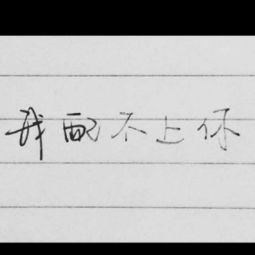 我配不上你